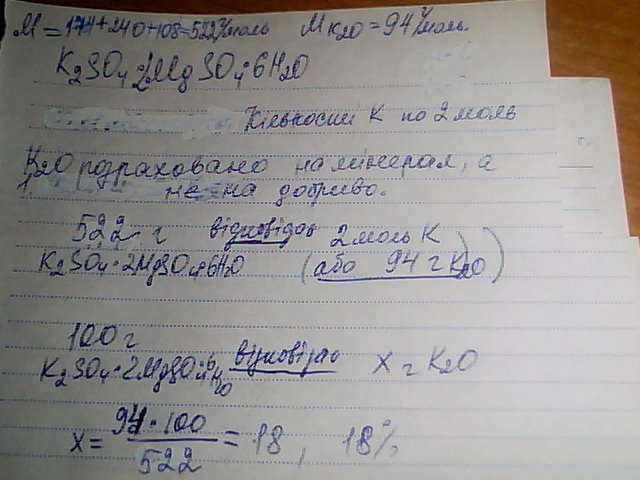 M = 174+240+108=522 г/моль M K₂O = 94 г/моль.
K₂SO₄·2MgSO₄·6H₂O
Кількості K по 2 моль
K₂O розраховано на мінерал, а
не на добриво.
522 г відповідає 2 моль K
K₂SO₄·2MgSO₄·6H₂O (або 94 г K₂O)
100 г
K₂SO₄·2MgSO₄·6H₂O відповідає x г K₂O
x = 94·100 / 522 = 18, 18%